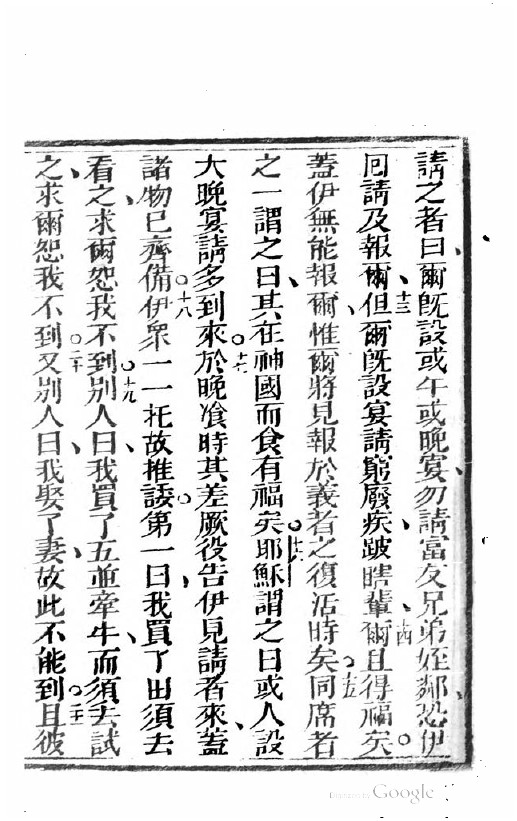 請之者曰爾旣設或午或晚宴勿請富友兄弟姪鄰恐伊
囘請及報爾十三但爾旣設宴請窮廢疾跛瞎輩十四爾且得福矣
蓋伊無能報爾惟爾將見報於義者之復活時矣十五同席者
之一謂之曰其在神國而食有福矣十六耶穌謂之曰或人設
大晚宴請多到來十七於晚飡時其差厥役告伊見請者來蓋
諸物已齊備十八伊衆一一托故推諉第一曰我買了田須去
看之求爾恕我不到十九別人曰我買了五並牽牛而須去試
之求爾恕我不到二十又別人曰我娶了妻故此不能到二十一且彼
Digitized by Google